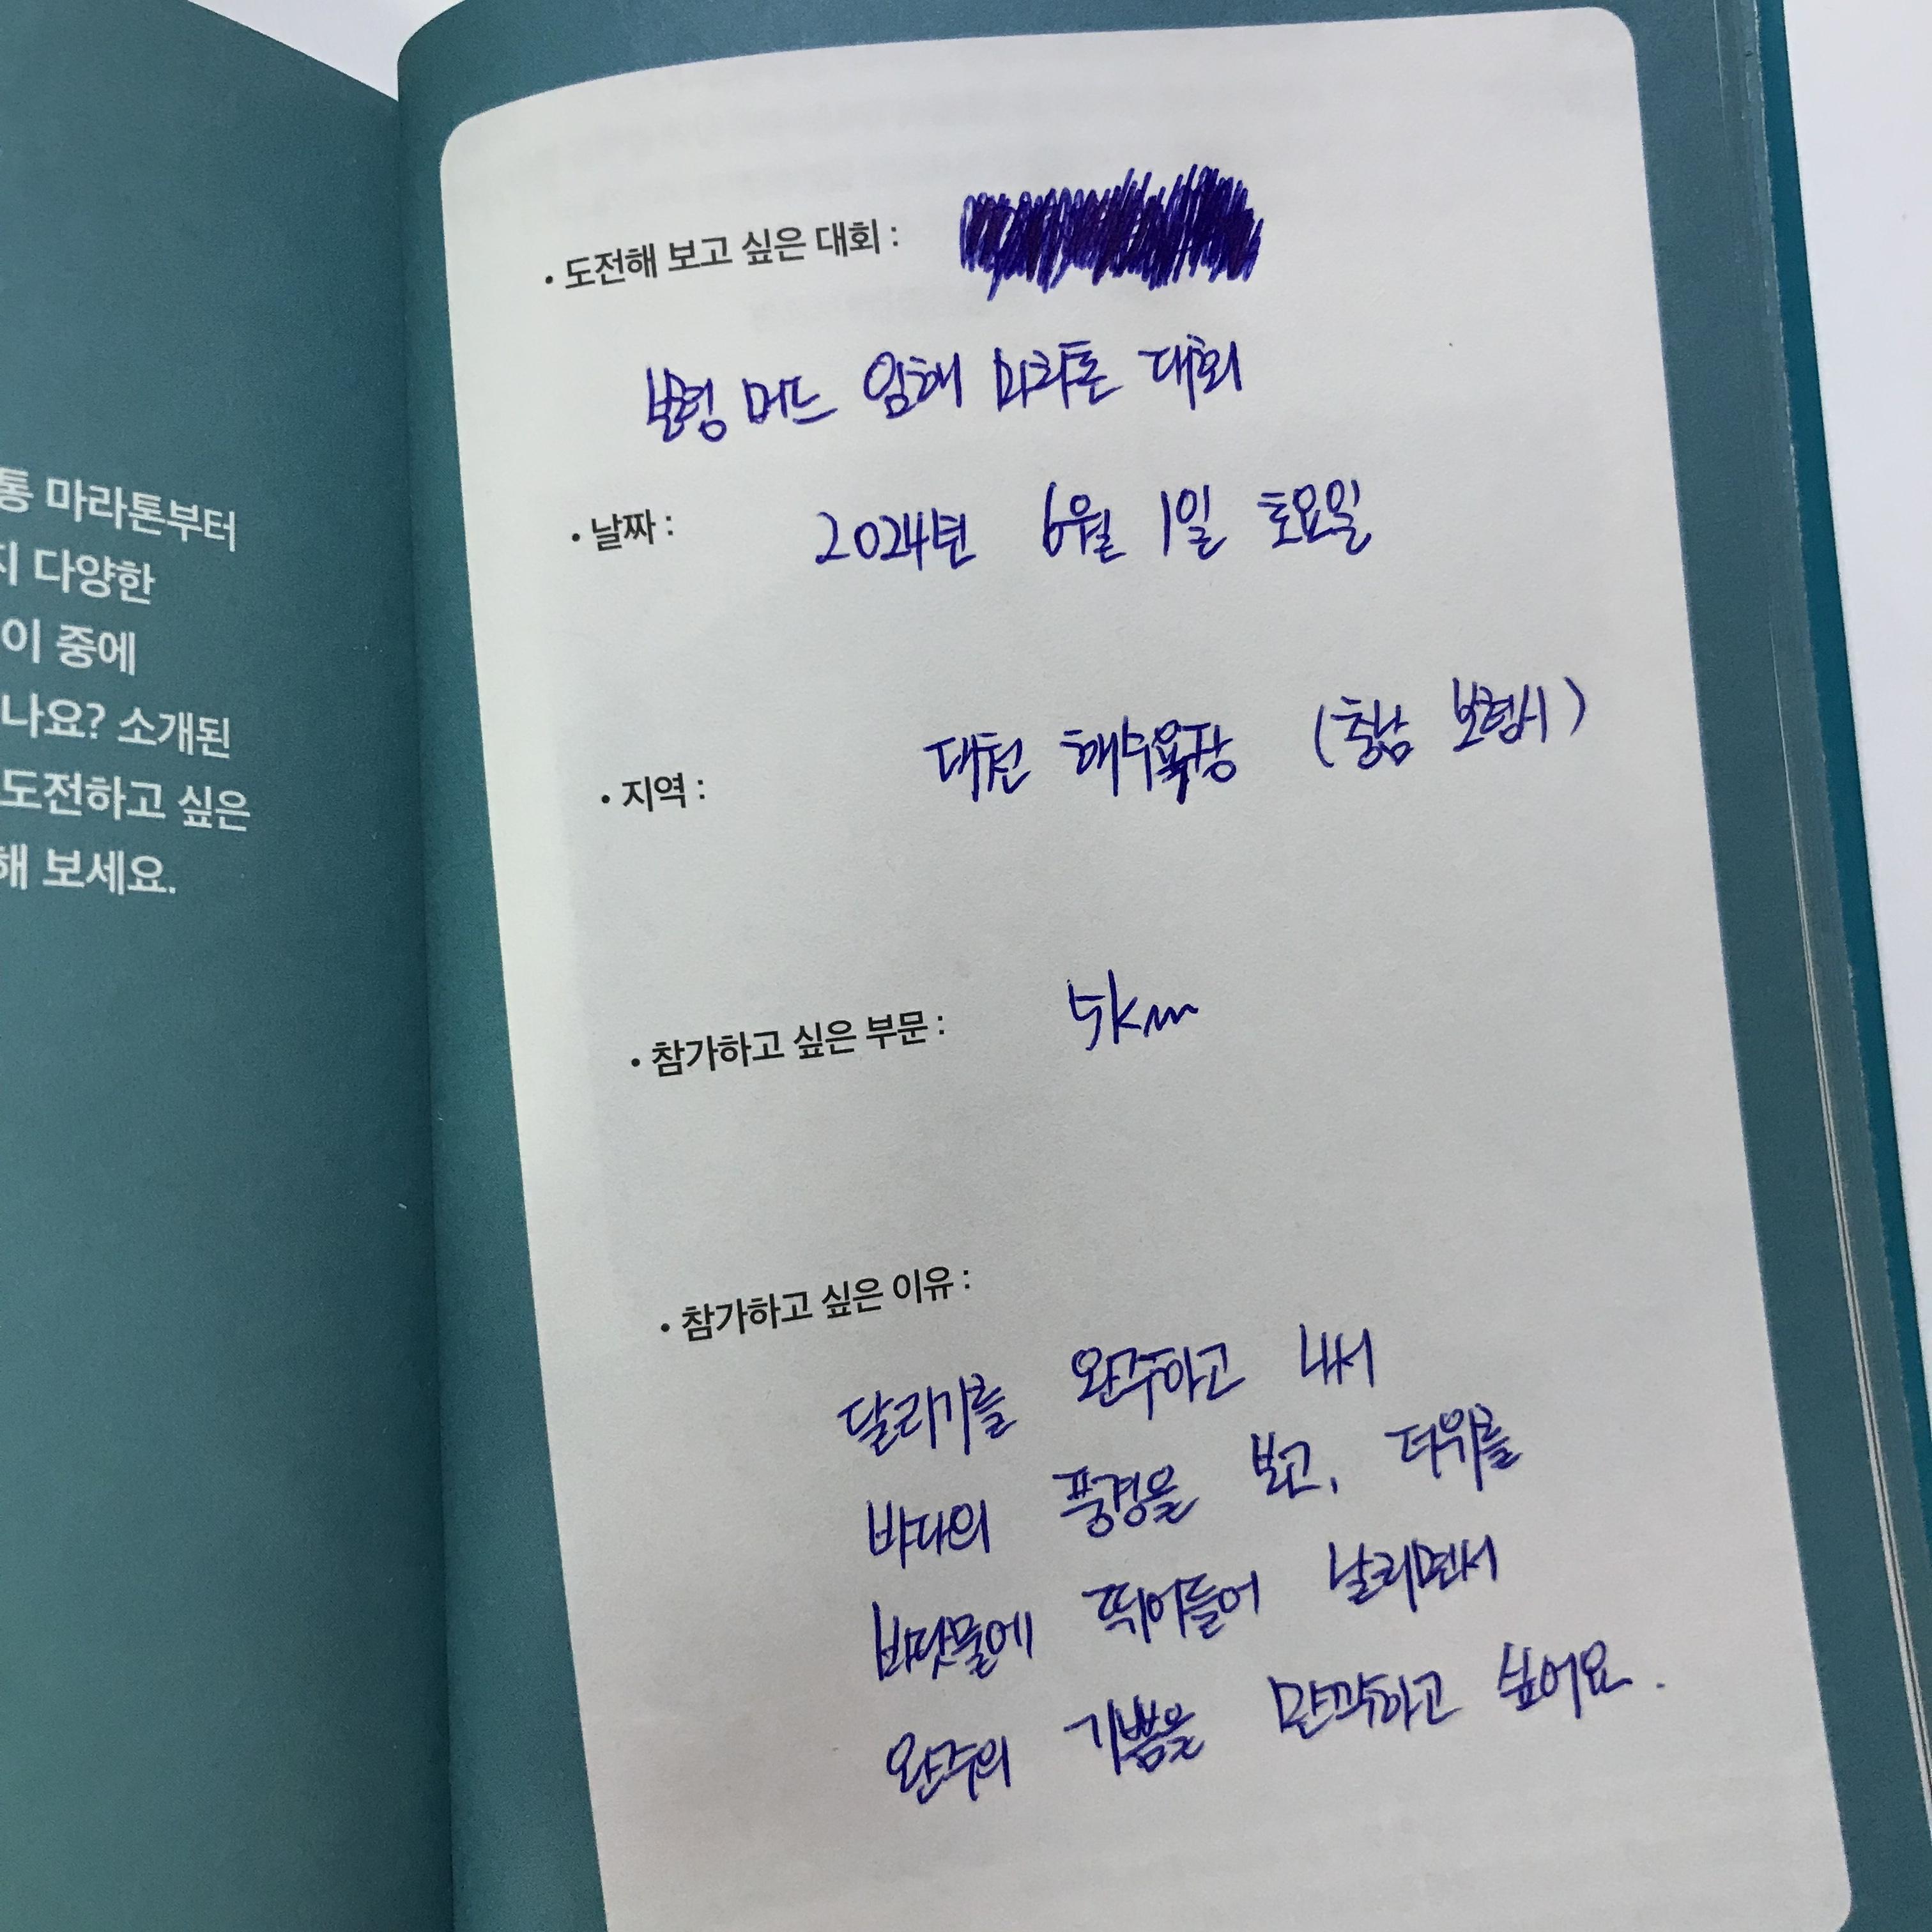 통 마라톤부터
지 다양한
이 중에
나요? 소개된
도전하고 싶은
해 보세요.
• 도전해 보고 싶은 대회 :
보령 머드 임해 마라톤 대회
• 날짜 : 2024년 6월 1일 토요일
• 지역 : 대천 해수욕장 (충남 보령시)
• 참가하고 싶은 부문 : 5km
• 참가하고 싶은 이유 :
달리기를 완주하고 나서
바다의 풍경을 보고, 더위를
바닷물에 뛰어들어 날리면서
완주의 기쁨을 만끽하고 싶어요.